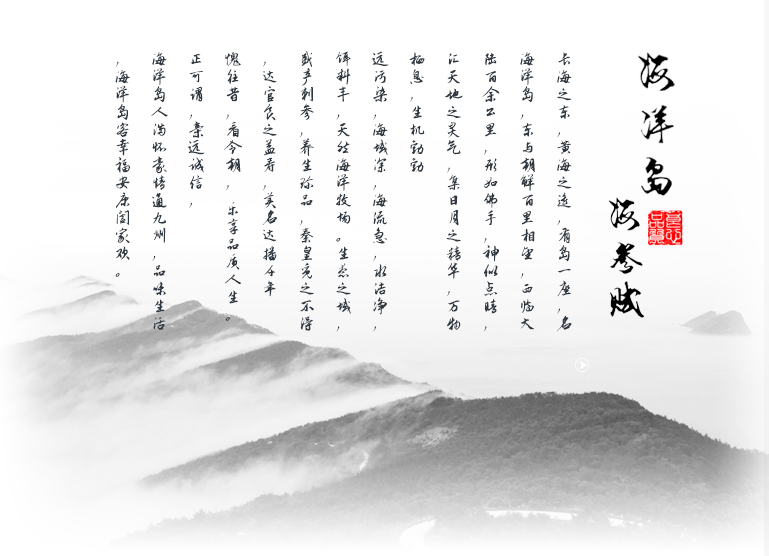 海洋岛
海参赋
长海之东，黄海之遥，有岛一座，名
海洋岛，东与朝鲜百里相望，西临大
陆百余公里，形如佛手，神似点睛，
汇天地之灵气，集日月之精华，万物
栖息，生机勃勃
远污染，海域深，海流急，水洁净，
饵料丰，天然海洋牧场。生态之域，
盛产刺参，养生珍品，秦皇觅之不得
，达官食之益寿，美名达播千年
愧往昔，看今朝，乐享品质人生。
正可谓，亲远诚信，
海洋岛人满怀豪情通九州，品味生活
，海洋岛客幸福安康阖家欢。